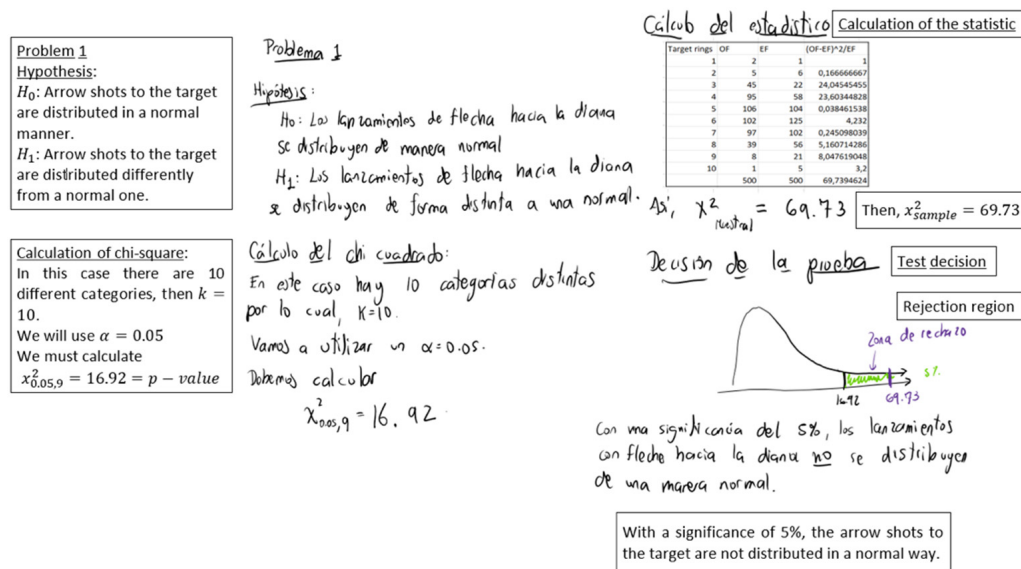 Problem 1
Hypothesis:
H₀: Arrow shots to the target
are distributed in a normal
manner.
H₁: Arrow shots to the target
are distributed differently
from a normal one.
Calculation of chi-square:
In this case there are 10
different categories, then k =
10.
We will use α = 0.05
We must calculate
x²₀.₀₅,₉ = 16.92 = p − value
Problema 1
Hipótesis:
H₀: Los lanzamientos de flecha hacia la diana
se distribuyen de manera normal
H₁: Los lanzamientos de flecha hacia la diana
se distribuyen de forma distinta a una normal.
Cálculo del chi cuadrado:
En este caso hay 10 categorías distintas
por lo cual, K=10.
Vamos a utilizar un α=0.05.
Debemos calcular
X²₀.₀₅,₉ = 16.92
Cálculo del estadístico Calculation of the statistic
Target rings OF EF (OF-EF)^2/EF
1 2 1 1
2 5 6 0,166666667
3 45 22 24,04545455
4 95 58 23,60344828
5 106 104 0,038461538
6 102 125 4,232
7 97 102 0,245098039
8 39 56 5,160714286
9 8 21 8,047619048
10 1 5 3,2
500 500 69,7394624
Así, X² muestral = 69.73 Then, x²sample = 69.73
Decisión de la prueba Test decision
Rejection region
Zona de rechazo
5%
16.92 69.73
Con una significancia del 5%, los lanzamientos
con fleche hacia la diana no se distribuyen
de una manera normal.
With a significance of 5%, the arrow shots to
the target are not distributed in a normal way.